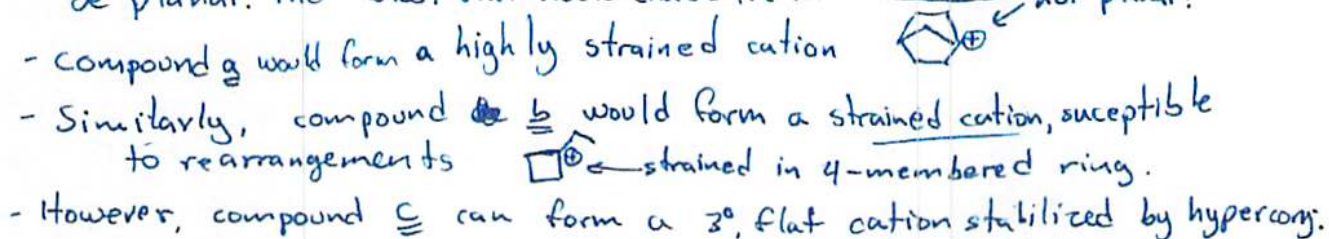 be planar.
not planar.
- compound a would form a highly strained cation ⊕
- Similarly, compound b would form a strained cation, suceptible
to rearrangements ⊕ strained in 4-membered ring.
- However, compound c can form a 3°, flat cation stabilized by hyperconj.